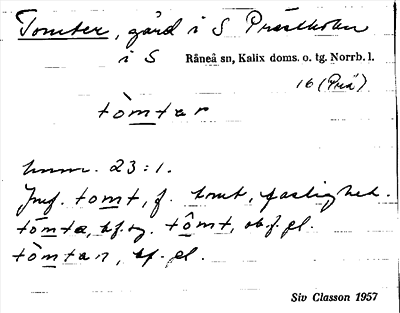 Tomter, gård i S Prästholm
i S Råneå sn, Kalix doms. o. tg. Norrb. l.
16 (Prä)
tòmtar
hmnr. 23:1.
Jmf. tomt, f. tomt, fastighet.
tòmta, bf. sg. tômt, ob. f. pl.
tòmtan, bf. pl.
Siv Classon 1957